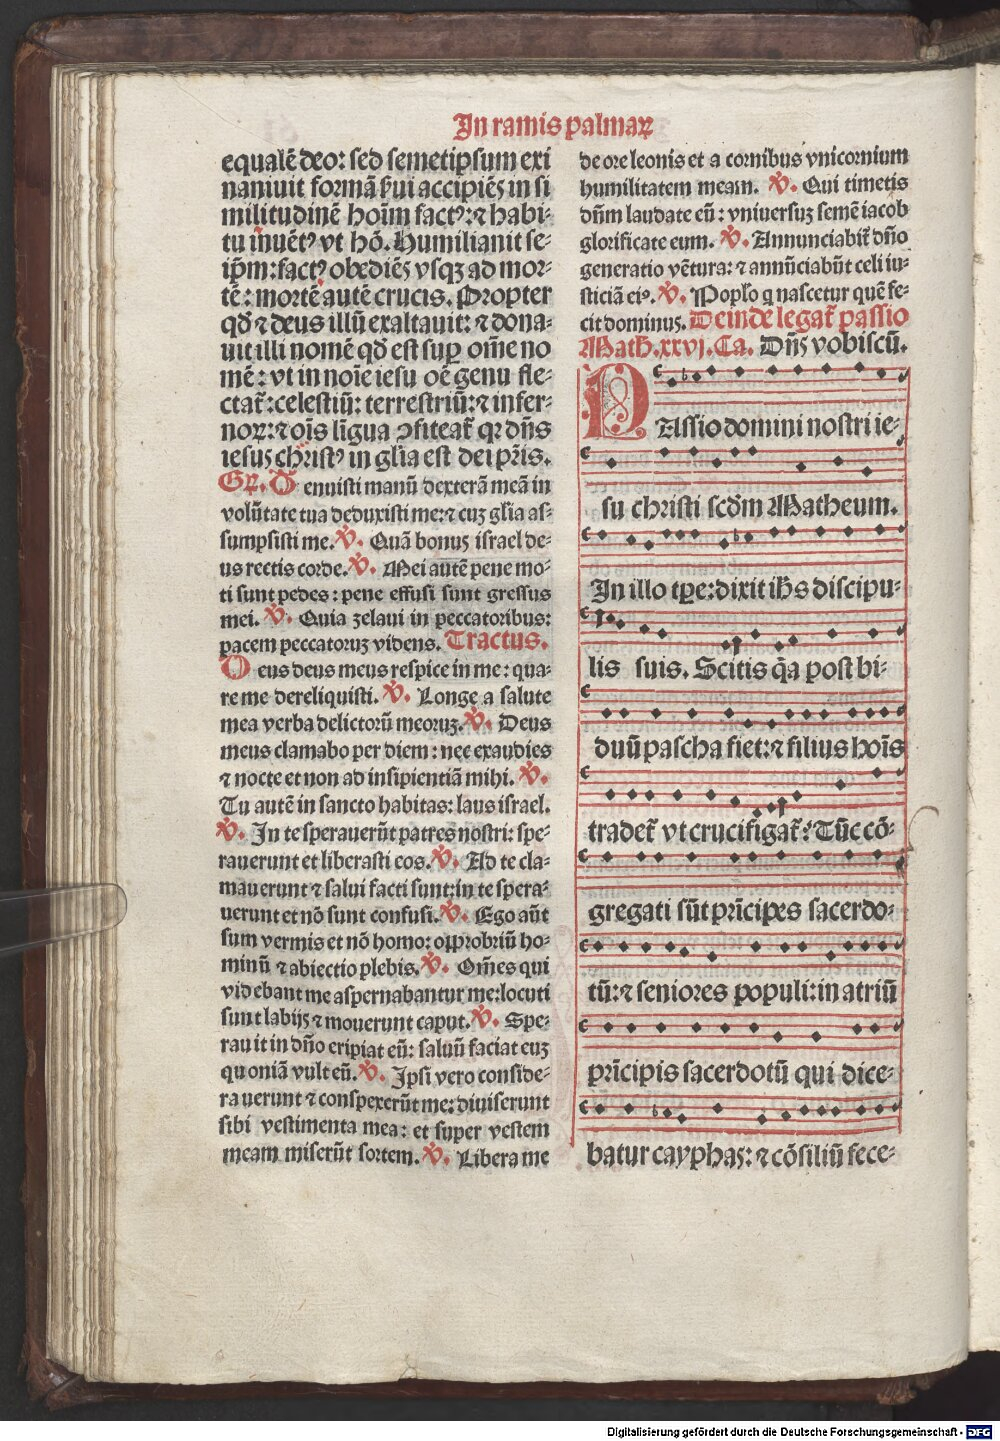 In ramis palmaꝝ
equalē deo: sed semetipsum exi
naniuit formā ẜui accipiēs in si
militudinē hoīm factꝰ: ⁊ habi-
tu inuētꝰ vt hō. Humiliauit se-
ip̄m: factꝰ obediēs vsqꝫ ad mor-
tē: mortē autē crucis. Propter
qd̓ ⁊ deus illū exaltauit: ⁊ dona-
uit illi nomē qd̓ est suꝑ om̄e no
mē: vt in noīe iesu oē genu fle-
ctat̄: celestiū: terrestriū: ⁊ infer-
noꝝ: ⁊ oīs līgua ꝯfiteat̄ qꝛ dn̄s
iesus christꝰ in gl̄ia est dei pr̄is.
Gr̄. Tenuisti manū dexterā meā in
volūtate tua deduxisti me: ⁊ cuꝫ gl̄ia as-
sumpsisti me. ℣. Quā bonus israel de-
us rectis corde. ℣. Mei autē pene mo-
ti sunt pedes: pene effusi sunt gressus
mei. ℣. Quia zelaui in peccatoribus:
pacem peccatoruꝫ videns. Tractus.
Deus deus meus respice in me: qua-
re me dereliquisti. ℣. Longe a salute
mea verba delictorū meoruꝫ. ℣. Deus
meus clamabo per diem: nec exaudies
⁊ nocte et non ad insipientiā mihi. ℣.
Tu autē in sancto habitas: laus israel.
℣. In te sperauerūt patres nostri: spe-
rauerunt et liberasti eos. ℣. Ad te cla-
mauerunt ⁊ salui facti sunt: in te spera-
uerunt et nō sunt confusi. ℣. Ego aūt
sum vermis et nō homo: opprobriū ho-
minū ⁊ abiectio plebis. ℣. Om̄es qui
videbant me aspernabantur me: locuti
sunt labijs ⁊ mouerunt caput. ℣. Spe-
rauit in dn̄o eripiat eū: saluū faciat euꝫ
quoniā vult eū. ℣. Ipsi vero conside-
rauerunt ⁊ conspexerūt me: diuiserunt
sibi vestimenta mea: et super vestem
meam miserūt sortem. ℣. Libera me
de ore leonis et a cornibus vnicornium
humilitatem meam. ℣. Qui timetis
dn̄m laudate eū: vniuersuꝫ semē iacob
glorificate eum. ℣. Annunciabit̄ dn̄o
generatio vētura: ⁊ annūciabūt celi iu-
sticiā eiꝰ. ℣. Pop̄lo q nascetur quē fe-
cit dominus. Deinde legat̄ passio
Math. xxvj. Ca. Dn̄s vobiscū.
PAssio domini nostri ie-
su christi scd̓m Matheum.
In illo tp̄e: dixit ih̄s discipu-
lis suis. Scitis q̄a post bi-
duū pascha fiet: ⁊ filius hoīs
tradet̄ vt crucifigat̄? Tūc cō-
gregati sūt prīcipes sacerdo-
tū: ⁊ seniores populi: in atriū
prīcipis sacerdotū qui dice-
batur cayphas: ⁊ cōsiliū fece-
Digitalisierung gefördert durch die Deutsche Forschungsgemeinschaft - DFG